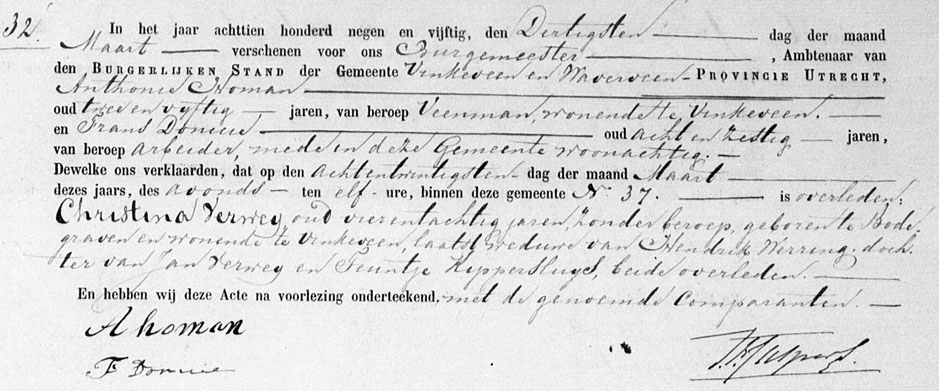 32.
In het jaar achttien honderd negen en vijftig, den Dertigsten dag der maand
Maart verschenen voor ons Burgemeester, Ambtenaar van
den Burgerlijken Stand der Gemeente Vinkeveen en Waverveen Provincie Utrecht,
Anthonie Homan
oud twee en vyftig jaren, van beroep Veenman, wonende te Vinkeveen.
en Frans Doncie oud acht en zestig jaren,
van beroep arbeider, mede in deze Gemeente woonachtig.
Dewelke ons verklaarden, dat op den Achtentwintigsten dag der maand Maart
dezes jaars, des avonds ten elf ure, binnen deze gemeente No. 37. is overleden:
Christina Verwey, oud vierentachtig jaren, zonder beroep, geboren te Bode-
graven en wonende te Vinkeveen, laatst weduwe van Hendrik Werring, doch-
ter van Jan Verwey en Teuntje Kippersluys, beide overleden.
En hebben wij deze Acte na voorlezing onderteekend, met de genoemde Comparanten.
A homan
F Doncie